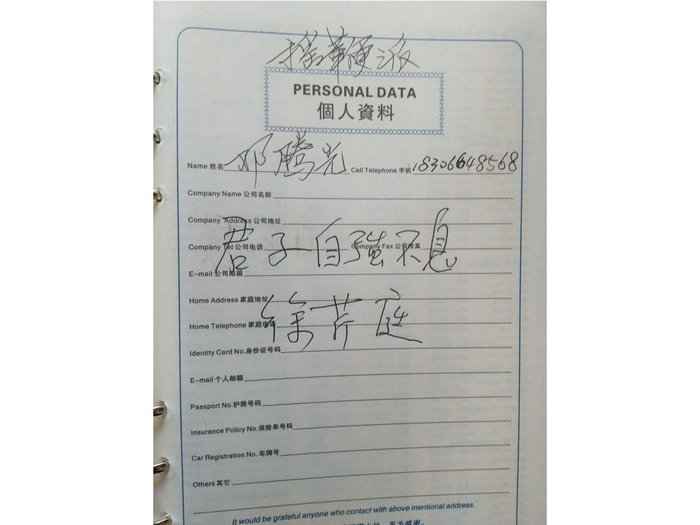 PERSONAL DATA
個人資料
Name 姓名 邓腾光 Cell Telephone 手机 18306648568
Company Name 公司名称
Company Address 公司地址
Company Tel 公司电话 Company Fax 公司传真
君子自強不息
E-mail 公司邮箱
Home Address 家庭地址
Home Telephone 家庭电话
徐芹庭
Identity Card No.身份证号码
E-mail 个人邮箱
Passport No.护照号码
Insurance Policy No.保险单号码
Car Registration No. 车牌号
Others 其它
It would be grateful anyone who contact with above mentional address.